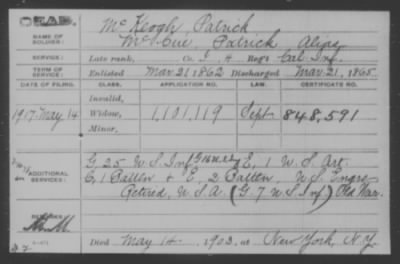 DEAD.
McKeogh, Patrick
NAME OF SOLDIER:
McCue, Patrick Alias
SERVICE:
Late rank, Co. I, H Reg't Cal Inf.
TERM OF SERVICE:
Enlisted Mar. 21 1862 Discharged Mar. 21, 1865
DATE OF FILING. CLASS. APPLICATION NO. LAW. CERTIFICATE NO.
Invalid,
1917-May 14 Widow, 1,101,119 Sept 848,591
Minor,
ADDITIONAL SERVICES:
G, 25 U S Inf E, 1 U S Art
C, 1 Batten & E, 2 Batten, U S Engrs
Retired, U.S.A (G. 7 U S Inf) Old War.
REMARKS:
Died May 14, 1903, at New York, N.Y.